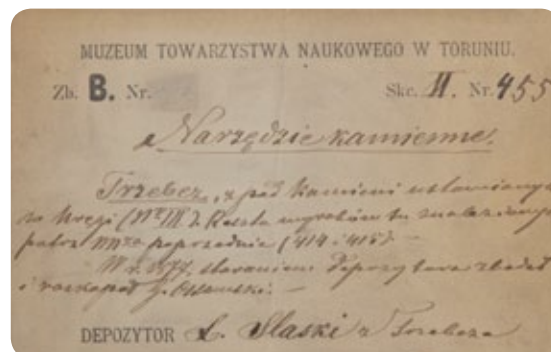 MUZEUM TOWARZYSTWA NAUKOWEGO W TORUNIU.
Zb. B. Nr. Skr. II. Nr. 455
Narzędzie kamienne.
Trzebcz, z pod kamieni ustawionych
w kręgi (Nr III). Reszta wyrobów tu znalezionych
patrz poprzednie (414 i 415). —
W r. 1877. staraniem depozytora zbadał
i rozkopał G. Ossowski. —
DEPOZYTOR L. Slaski z Trzebcza